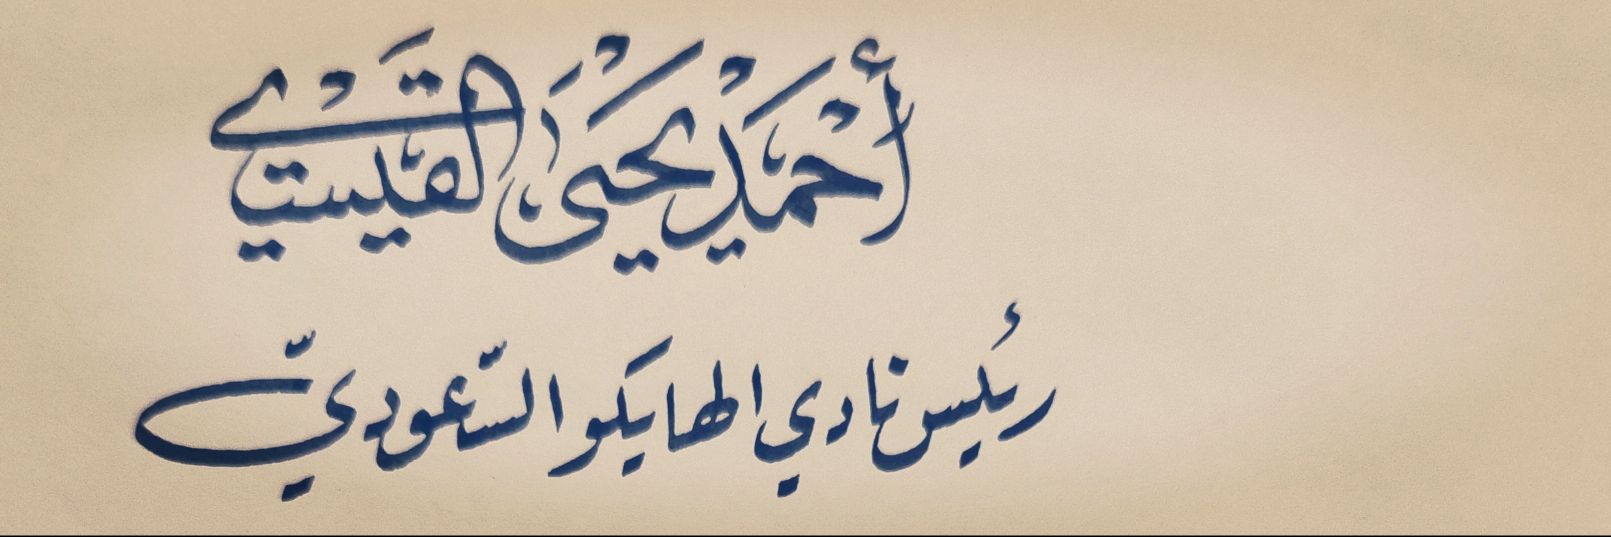 أَحْمَدْ يَحْيَىٰ القَيْسِي
رئيس نادي الهايكو السّعوديّ